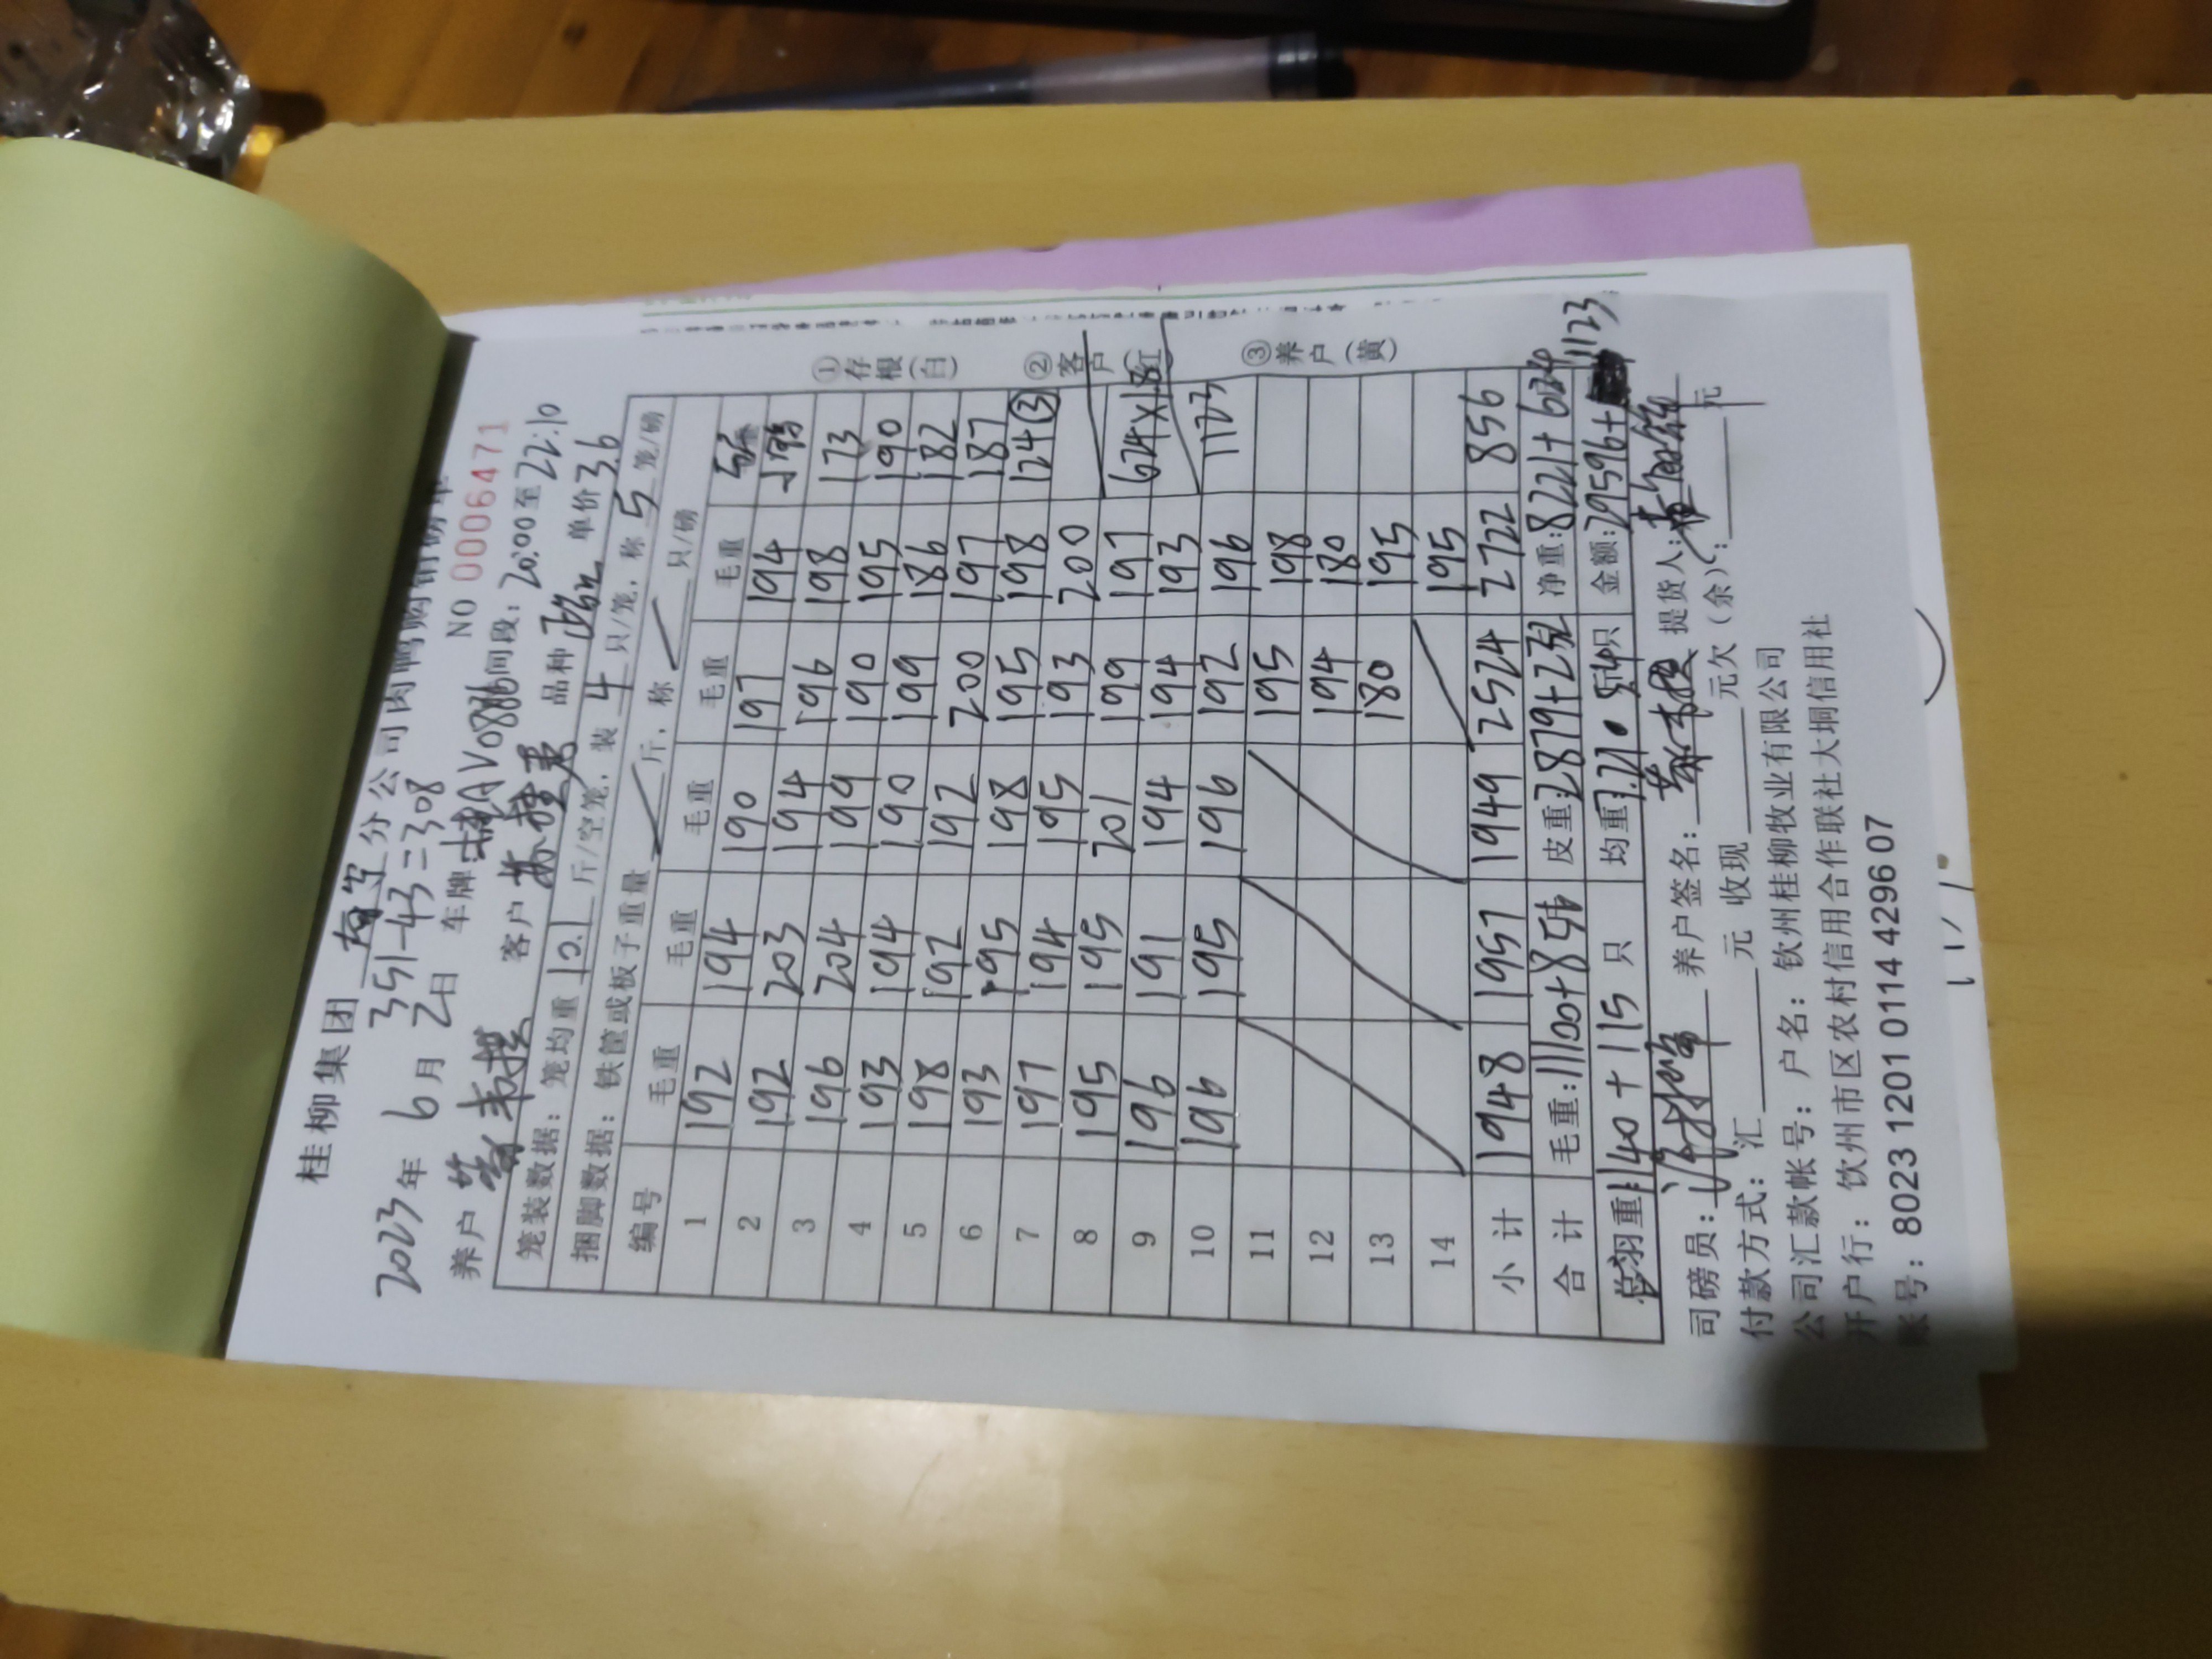 桂柳集团 分公司肉鸭购销磅单
351-43=308
NO 0006471
2023年 6月 2日 车牌: 间段: 20:00至22:10
养户 客户 品种 单价3.6
笼装数据: 笼均重 12.1 斤/空笼, 装 4 只/笼, 称 5 笼/磅
捆脚数据: 铁筐或板子重量 斤, 称 只/磅
编号 毛重 毛重 毛重 毛重 毛重
1 192 194 190 197 194
2 192 203 194 196 198 小鸭
3 196 204 199 190 195 173
4 193 194 190 199 186 190
5 198 192 192 200 197 182
6 193 195 198 195 198 187
7 197 194 195 193 200 124③
8 195 195 201 199 197
9 196 191 194 194 193 624×1.8
10 196 195 196 192 196 1123
11 195 198
12 194 180
13 180 195
14 195
小计 1948 1957 1949 2524 2722 856
合计 毛重:11100+856 皮重:2879+232 净重:8221+624
总羽重:1140+115 只 均重:7.21 5.4 只 金额:29596+1123
司磅员: 养户签名: 提货人:
付款方式: 汇 元 收现 元欠(余): 元
公司汇款帐号: 户名: 钦州桂柳牧业有限公司
开户行: 钦州市区农村信用合作联社大垌信用社
帐号: 8023 1201 0114 4296 07
①存根(白)
②客户(红)
③养户(黄)